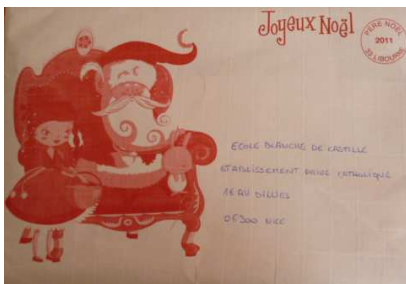 Joyeux Noël
PERE NOËL
2011
33 LIBOURNE
ECOLE BLANCHE DE CASTILLE
ETABLISSEMENT PRIVE CATHOLIQUE
AV
06300 NICE